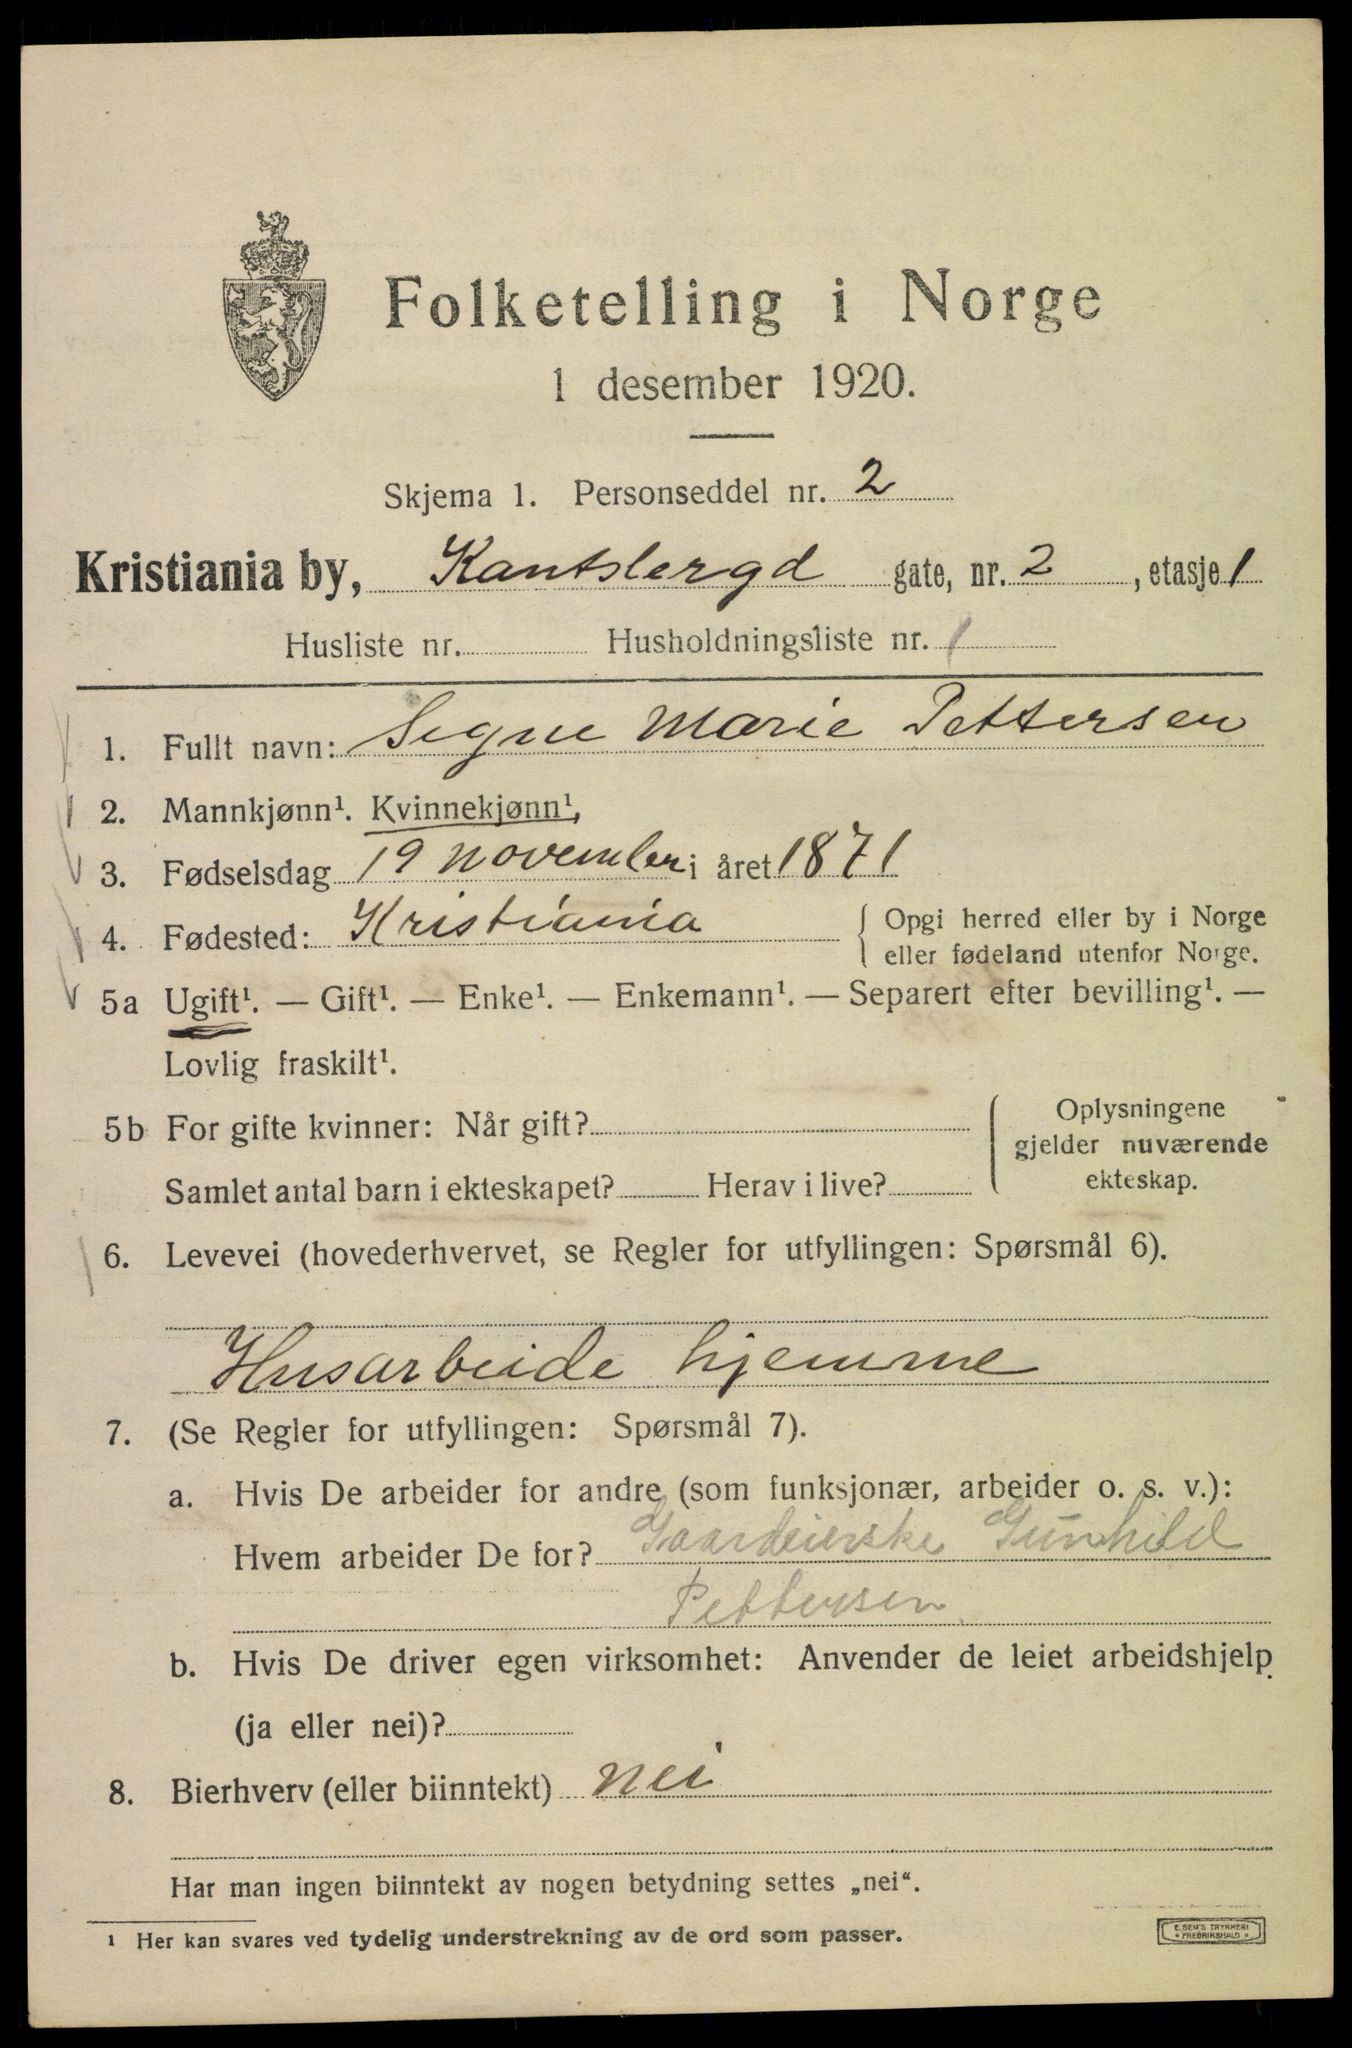 Folketelling i Norge
1 desember 1920.
Skjema 1. Personseddel nr. 2
Kristiania by, Kantslergd gate, nr. 2, etasje 1
Husliste nr. Husholdningsliste nr. 1
1. Fullt navn: Segne Marie Pettersen
2. Mannkjønn¹. Kvinnekjønn¹,
3. Fødselsdag 19 November i året 1871
4. Fødested: Kristiania { Opgi herred eller by i Norge
eller fødeland utenfor Norge.
5a Ugift¹. — Gift¹. — Enke¹. — Enkemann¹. — Separert efter bevilling¹. —
Lovlig fraskilt¹.
5b For gifte kvinner: Når gift?
Samlet antal barn i ekteskapet? Herav i live?
{ Oplysningene
gjelder nuværende
ekteskap.
6. Levevei (hovederhvervet, se Regler for utfyllingen: Spørsmål 6).
Husarbeide hjemme
7. (Se Regler for utfyllingen: Spørsmål 7).
a. Hvis De arbeider for andre (som funksjonær, arbeider o. s. v.):
Hvem arbeider De for? Gaardeierske Gunhild
Pettersen
b. Hvis De driver egen virksomhet: Anvender de leiet arbeidshjelp
(ja eller nei)?
8. Bierhverv (eller biinntekt) nei
Har man ingen biinntekt av nogen betydning settes „nei“.
¹ Her kan svares ved tydelig understrekning av de ord som passer.
E. SEM'S TRYKKERI
• FREDRIKSHALD •